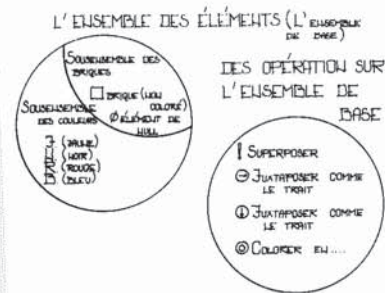 L'ENSEMBLE DES ÉLÉMENTS (L'ENSEMBLE
DE BASE)
SOUSENSEMBLE DES
BRIQUES
BRIQUE (NON
COLORÉ)
Ø ÉLÉMENT DE
NULL
SOUSENSEMBLE
DES COULEURS
(JAUNE)
(NOIR)
(ROUGE)
(BLEU)
DES OPÉRATION SUR
L'ENSEMBLE DE
BASE
! SUPERPOSER
JUXTAPOSER COMME
LE TRAIT
JUXTAPOSER COMME
LE TRAIT
COLORER EN....